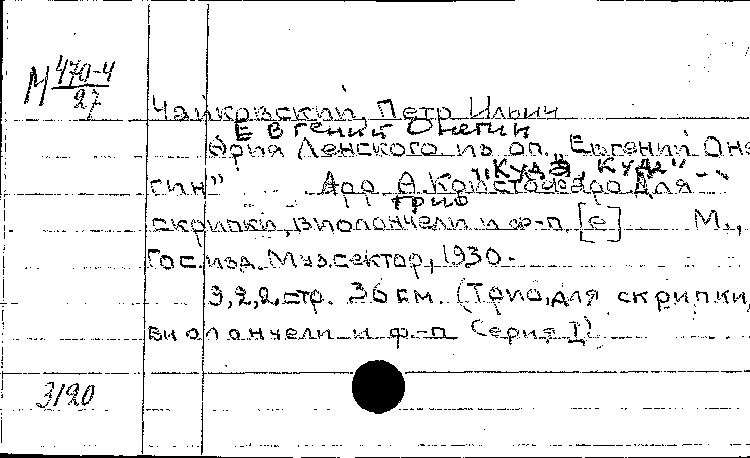 М 470-4
27
Чайковский, Петр Ильич
Евгений Онегин
Ария Ленского из оп. "Евгений Оне
"Куда, куда"
гин" Арр. А. для
трио
скрипки, виолончели и ф-п. [e] М.,
Гос. изд. Муз. сектор, 1930.
9,2,2, стр. 36 см. (Трио, для скрипки,
виолончели и ф-п Серия I)
3120